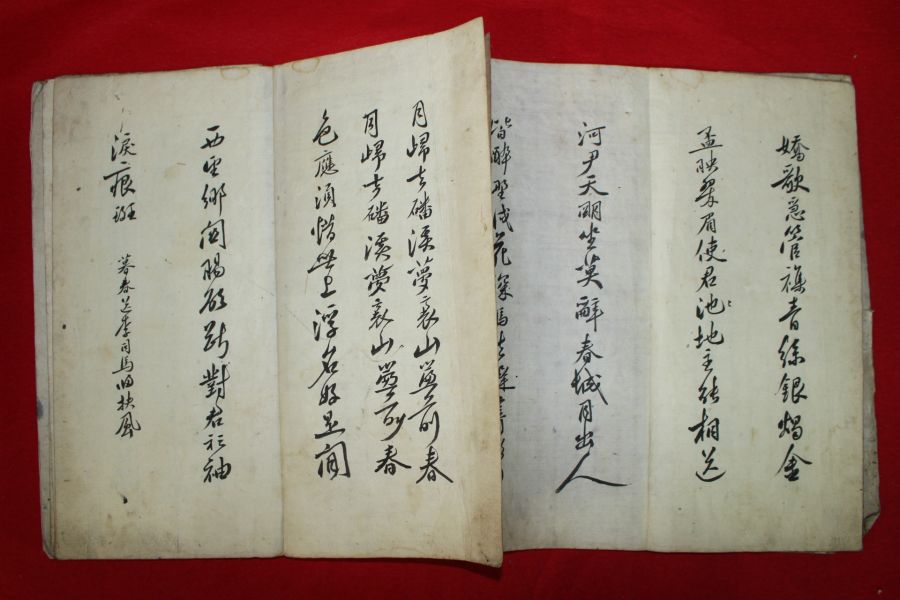 嬌歌急管雜青絲銀燭金
盃映翠眉使君池地主能相送
河尹天明坐莫辭春城月出人
皆醉野戍花深馬去遲寄
月歸去磻溪夢裏山簾前春
月歸去磻溪夢裏山簾前春
色應須惜世上浮名好是閑
西望鄉關腸欲斷對君衫袖
淚痕斑 暮春送李司馬歸扶風